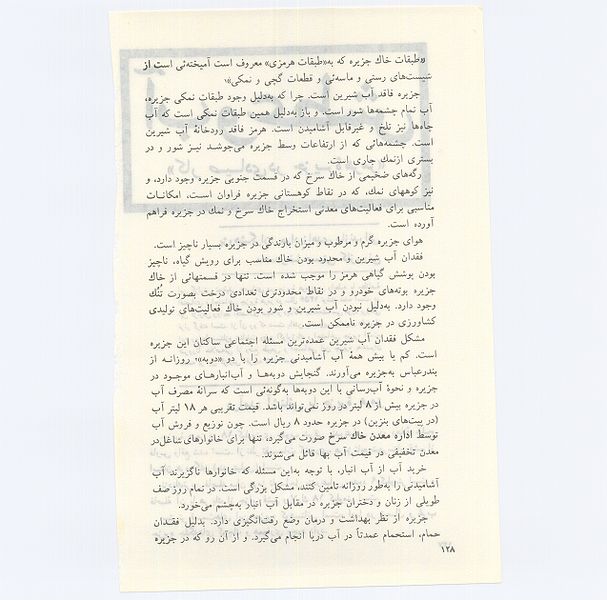 «طبقات خاك جزیره که به«طبقات هرمزی» معروف است آمیخته‌ئی است از
شیست‌های رستی و ماسه‌ئی و قطعات گچی و نمکی»۱
جزیره فاقد آب شیرین است. چرا که به‌دلیل وجود طبقات نمکی جزیره،
آب تمام چشمه‌ها شور است. و باز به‌دلیل همین طبقات نمکی است که آب
چاه‌ها نیز تلخ و غیرقابل آشامیدن است. هرمز فاقد رودخانهٔ آب شیرین
است. چشمه‌هائی که از ارتفاعات وسط جزیره می‌جوشـد نیـز شور و در
بستری ازنمك جاری است.
رگه‌های ضخیمی از خاك سرخ که در قسمت جنوبی جزیره وجود دارد، و
نیز کوههای نمك، که در نقاط کوهستانی جزیره فراوان اسـت، امکانـات
مناسبی برای فعالیت‌های معدنی استخراج خاك سرخ و نمك در جزیره فراهم
آورده است.
هوای جزیره گرم و مرطوب و میزان بارندگی در جزیره بسیار ناچیز است.
فقدان آب شیرین و محدود بودن خاك مناسب برای رویش گیاه، ناچیز
بودن پوشش گیاهی هرمز را موجب شده است. تنها در قسمتهائی از خاك
جزیره بوته‌های خودرو و در نقاط محدودتری تعدادی درخت بصورت تُنُك
وجود دارد. به‌دلیل نبودن آب شیرین و شور بودن خاك فعالیت‌های تولیدی
کشاورزی در جزیره ناممکن است.
مشکل فقدان آب شیرین عمده‌ترین مسئله اجتماعی ساکنان این جزیره
است. کم یا بیش همهٔ آب آشامیدنی جزیره را با دو «دوبه»۲ روزانـه از
بندرعباس به‌جزیره می‌آورند. گنجایش دوبه‌هـا و آب‌انبارهـای موجـود در
جزیره و نحوهٔ آب‌رسانی با این دوبه‌ها به‌گونه‌ئی است که سرانهٔ مصرف آب
در جزیره بیش از ۸ لیتر در روز نمی‌تواند باشد. قیمت تقریبی هر ۱۸ لیتر آب
(در پیت‌های بنزین) در جزیره حدود ۸ ریال است. چون توزیع و فروش آب
توسط اداره معدن خاك سرخ صورت می‌گیرد، تنها برای خانوارهای شاغل‌در
معدن تخفیفی در قیمت آب بها قائل می‌شوند.
خرید آب از آب انبار، با توجه به‌این مسئله که خانوارها ناگزیرند آب
آشامیدنی را به‌طور روزانه تامین کنند، مشکل بزرگی است. در تمام روز صف
طویلی از زنان و دختران جزیره در مقابل آب انبار به‌چشم می‌خورد.
جزیره از نظر بهداشت و درمان وضع رقت‌انگیزی دارد. بدلیل فقـدان
حمام، استحمام عمدتاً در آب دریا انجام می‌گیرد. و از آن رو که در جزیره
۱۲۸